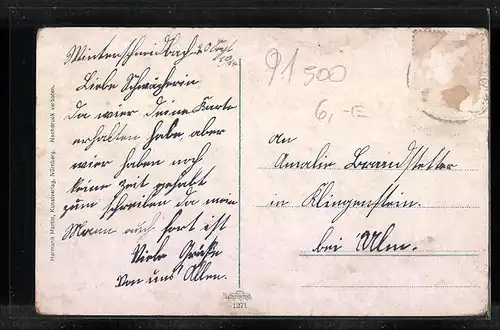 Winterschneidbach 20 Sept
Liebe Schwägerin
Da wier deine Karte
erhalten habe, aber
wier haben noch
keine Zeit gehabt
zum schreiben da mein
Mann auch fort ist
Viele Grüße
von uns Allen.
91500
6,-
An
Amalie Brandstetter
in Klingenstein.
bei Ulm.
Hermann Martin, Kunstverlag, Nürnberg. Nachdruck verboten.
1271